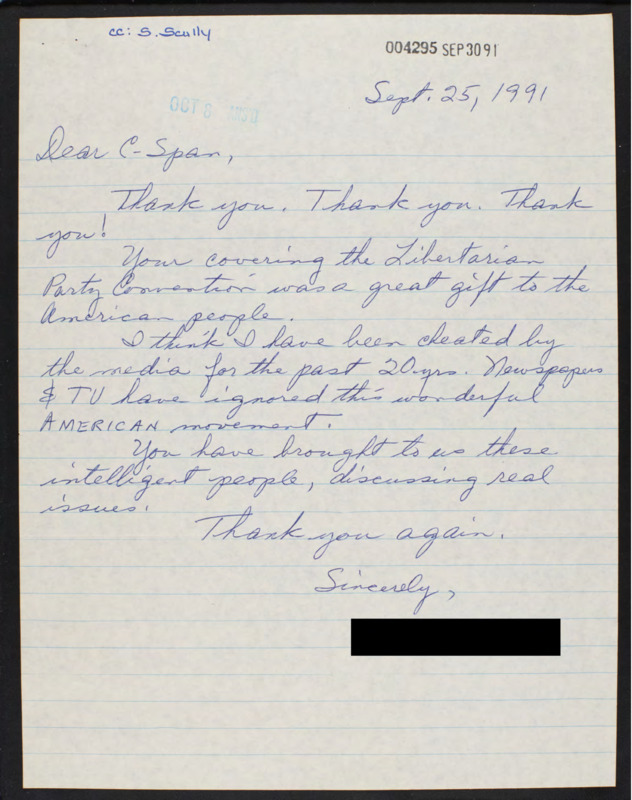 cc: S. Scully
004295 SEP 30 91
OCT 8
Sept. 25, 1991
Dear C-Span,
Thank you. Thank you. Thank
you!
Your covering the Libertarian
Party Convention was a great gift to the
American people.
I think I have been cheated by
the media for the past 20 yrs. Newspapers
& TV have ignored this wonderful
AMERICAN movement.
You have brought to us these
intelligent people, discussing real
issues.
Thank you again.
Sincerely,